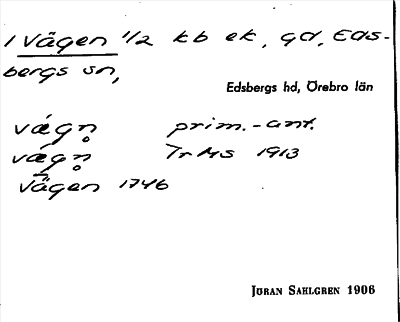 1 Vägen 1/2 kb ek, gd, Eds-
bergs sn,
Edsbergs hd, Örebro län
vágn̥ prim.-ant.
vægn̥ Tr MS 1913
Vägen 1746
JÖRAN SAHLGREN 1906